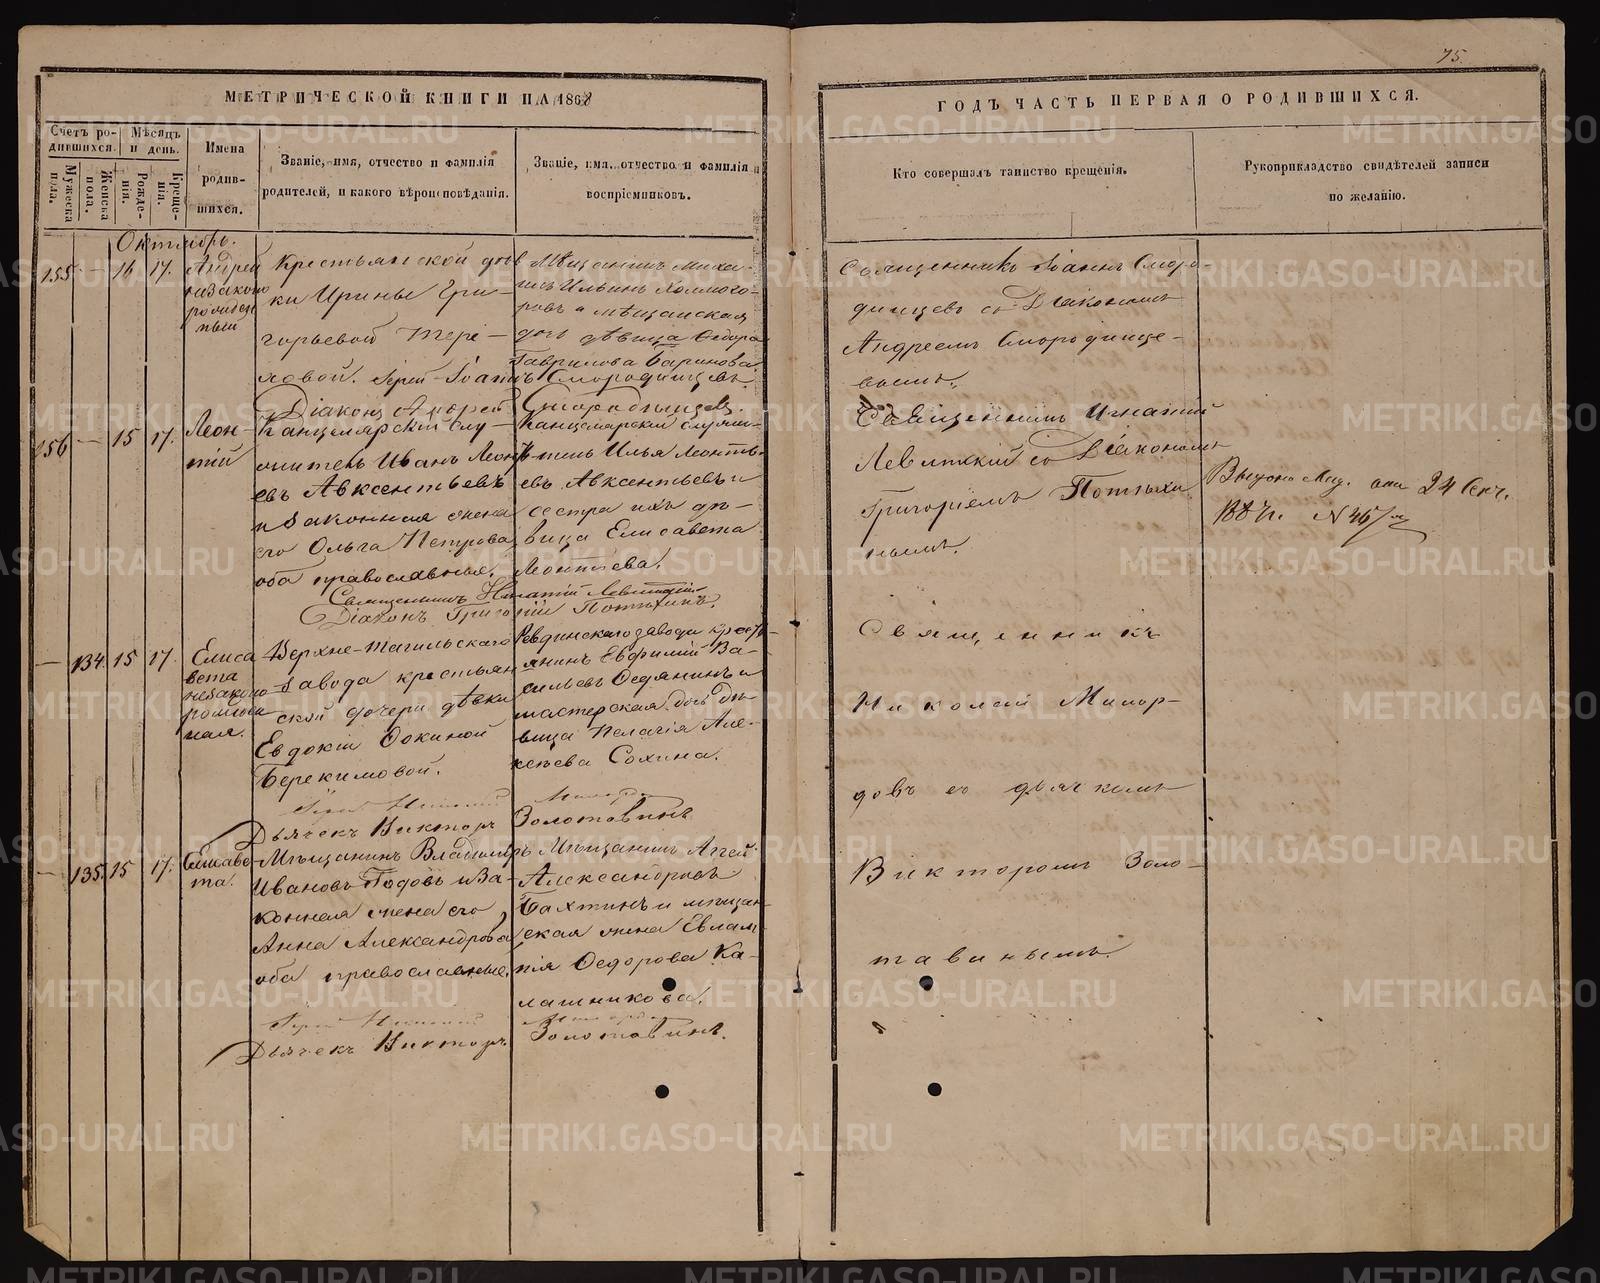 75.
МЕТРИЧЕСКОЙ КНИГИ НА 1868
ГОДЪ ЧАСТЬ ПЕРВАЯ О РОДИВШИХСЯ.
Счетъ ро-
дившихся.
Мужеска
пола.
Женска
пола.
Мѣсяцъ
и день.
Рожде-
нія.
Креще-
нія.
Имена
родив-
шихся.
Званіе, имя, отчество и фамилія
родителей, и какого вѣроисповѣданія.
Званіе, имя, отчество и фамилія
воспріемниковъ.
Кто совершалъ таинство крещенія.
Рукоприкладство свидѣтелей записи
по желанію.
Октябрь.
155 — 16 17.
Андрей
незаконо
рожден
ный
Крестьянской дѣв
ки Ирины Гри-
горьевой
Іерей Іоаннъ Смородинцевъ
Діаконъ Андрей Смородинцевъ
Мѣщанинъ Миха-
илъ Ильинъ Холмого-
ровъ и мѣщанская
дочь дѣвица Ѳедора
Гаврилова Баринова.
Священникъ Іоаннъ Сморо-
динцевъ съ Діакономъ
Андреемъ Смородинце-
вымъ.
156 — 15 17.
Леон-
тій
Канцелярскій слу-
житель Иванъ Леонть-
евъ Авксентьевъ
и законная жена
его Ольга Петрова
оба православные.
Священникъ Игнатій Левитскій
Діаконъ Григорій Потѣхинъ.
Канцелярскій служи-
тель Илья Леонть-
евъ Авксентьевъ и
сестра ихъ дѣ-
вица Елисавета
Леонтьева.
Священникъ Игнатій
Левитскій со Діакономъ
Григоріемъ Потѣхи
нымъ.
24 Сен.
— 134. 15 17.
Елиса
вета
незаконо
рожден
ная.
Верхне-Тагильскаго
завода крестьян
ской дочери дѣвки
Евдокіи Ѳокиной
Берекимовой.
Дьячекъ Викторъ Золотавинъ
Ревдинскаго завода кресть-
янинъ Евфимій Ва-
сильевъ Ѳедянинъ и
мастерская дочь дѣ-
вица Пелагія Але-
ксѣева Сохина.
Священникъ
Николай Милор-
довъ съ дьячкомъ
Викторомъ Золо-
тавинымъ.
— 135. 15 17.
Елисаве
та.
Мѣщанинъ Владиміръ
Ивановъ Подовъ и за-
конная жена его
Анна Александрова
оба православные.
Дьячекъ Викторъ Золотавинъ.
Мѣщанинъ Аггей
Александровъ
Бахтинъ и мѣщан-
ская жена Евлам-
пія Ѳедорова Ка-
лашникова.
METRIKI.GASO-URAL.RU